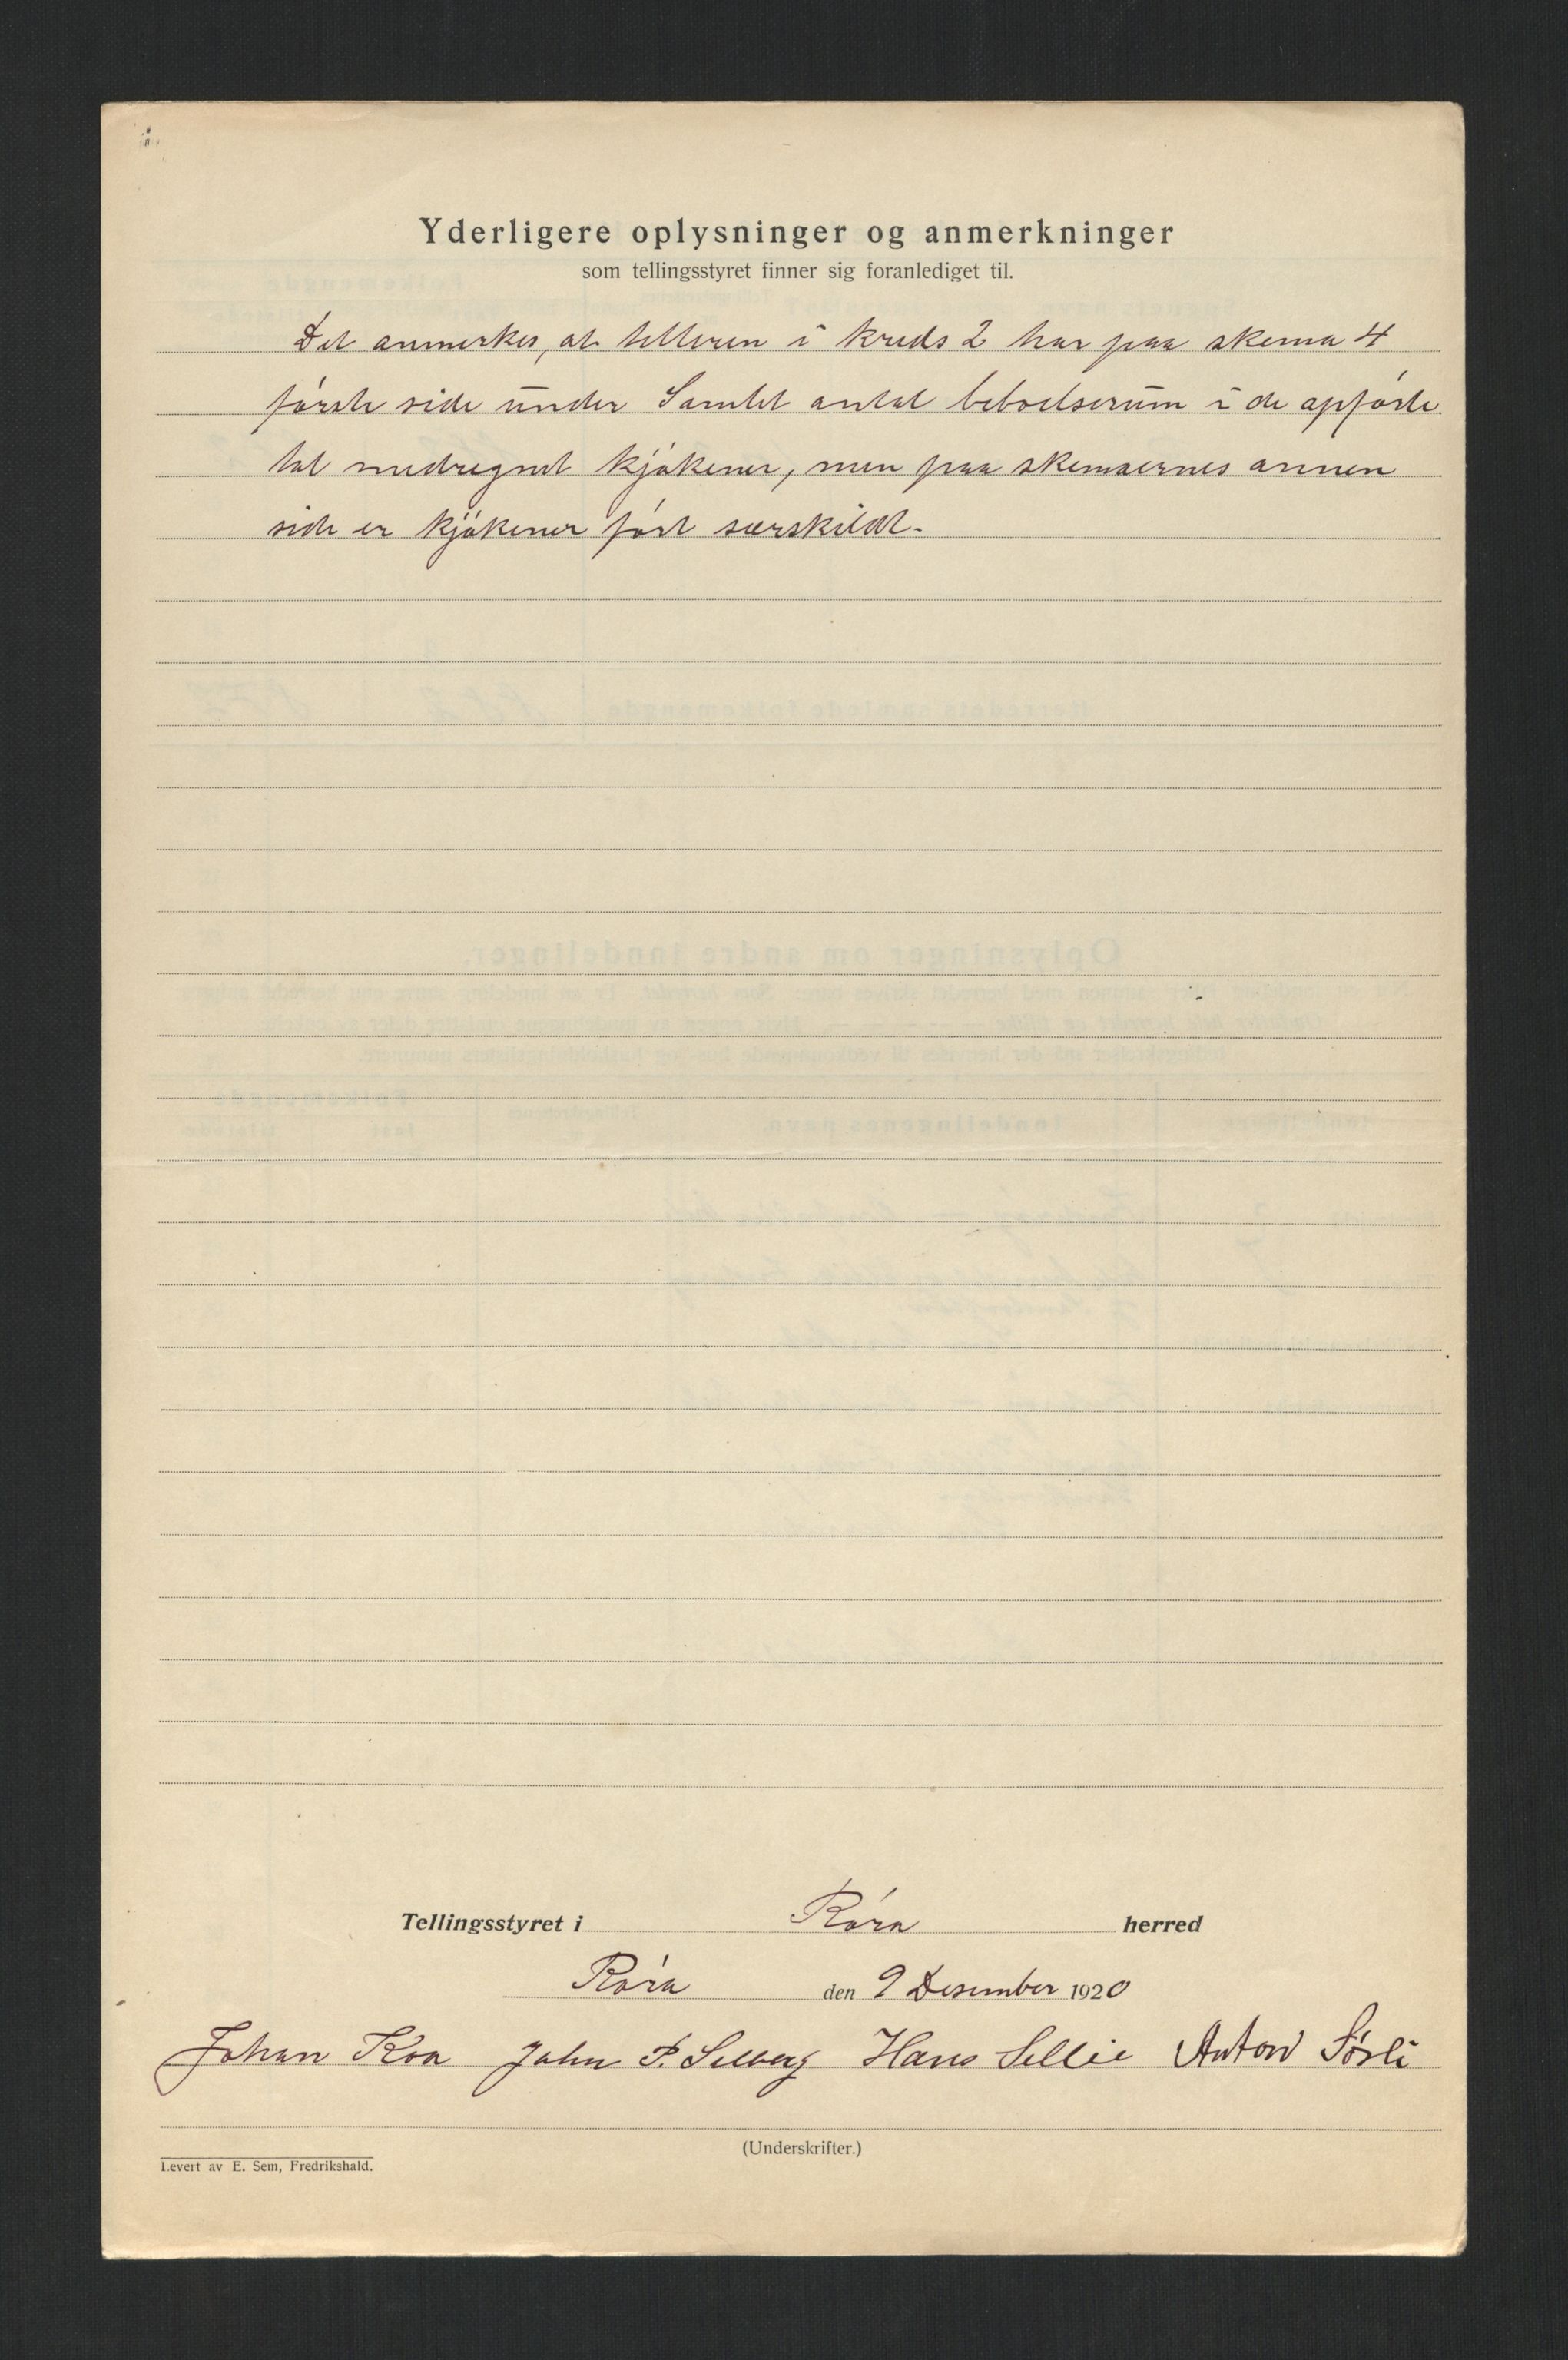 Yderligere oplysninger og anmerkninger
som tellingsstyret finner sig foranlediget til.
Det anmerkes, at telleren i kreds 2 har paa skema 4
første side under Samlet antal beboelserum i de opførte
tal medregnet kjøkener, men paa skemaernes annen
side er kjøkener ført særskildt.
Tellingsstyret i Røra herred
Røra den 9 Desember 1920
Johan Koa John P. Selberg Hans Sellie Anton Sørli
(Underskrifter.)
Levert av E. Sem, Fredrikshald.